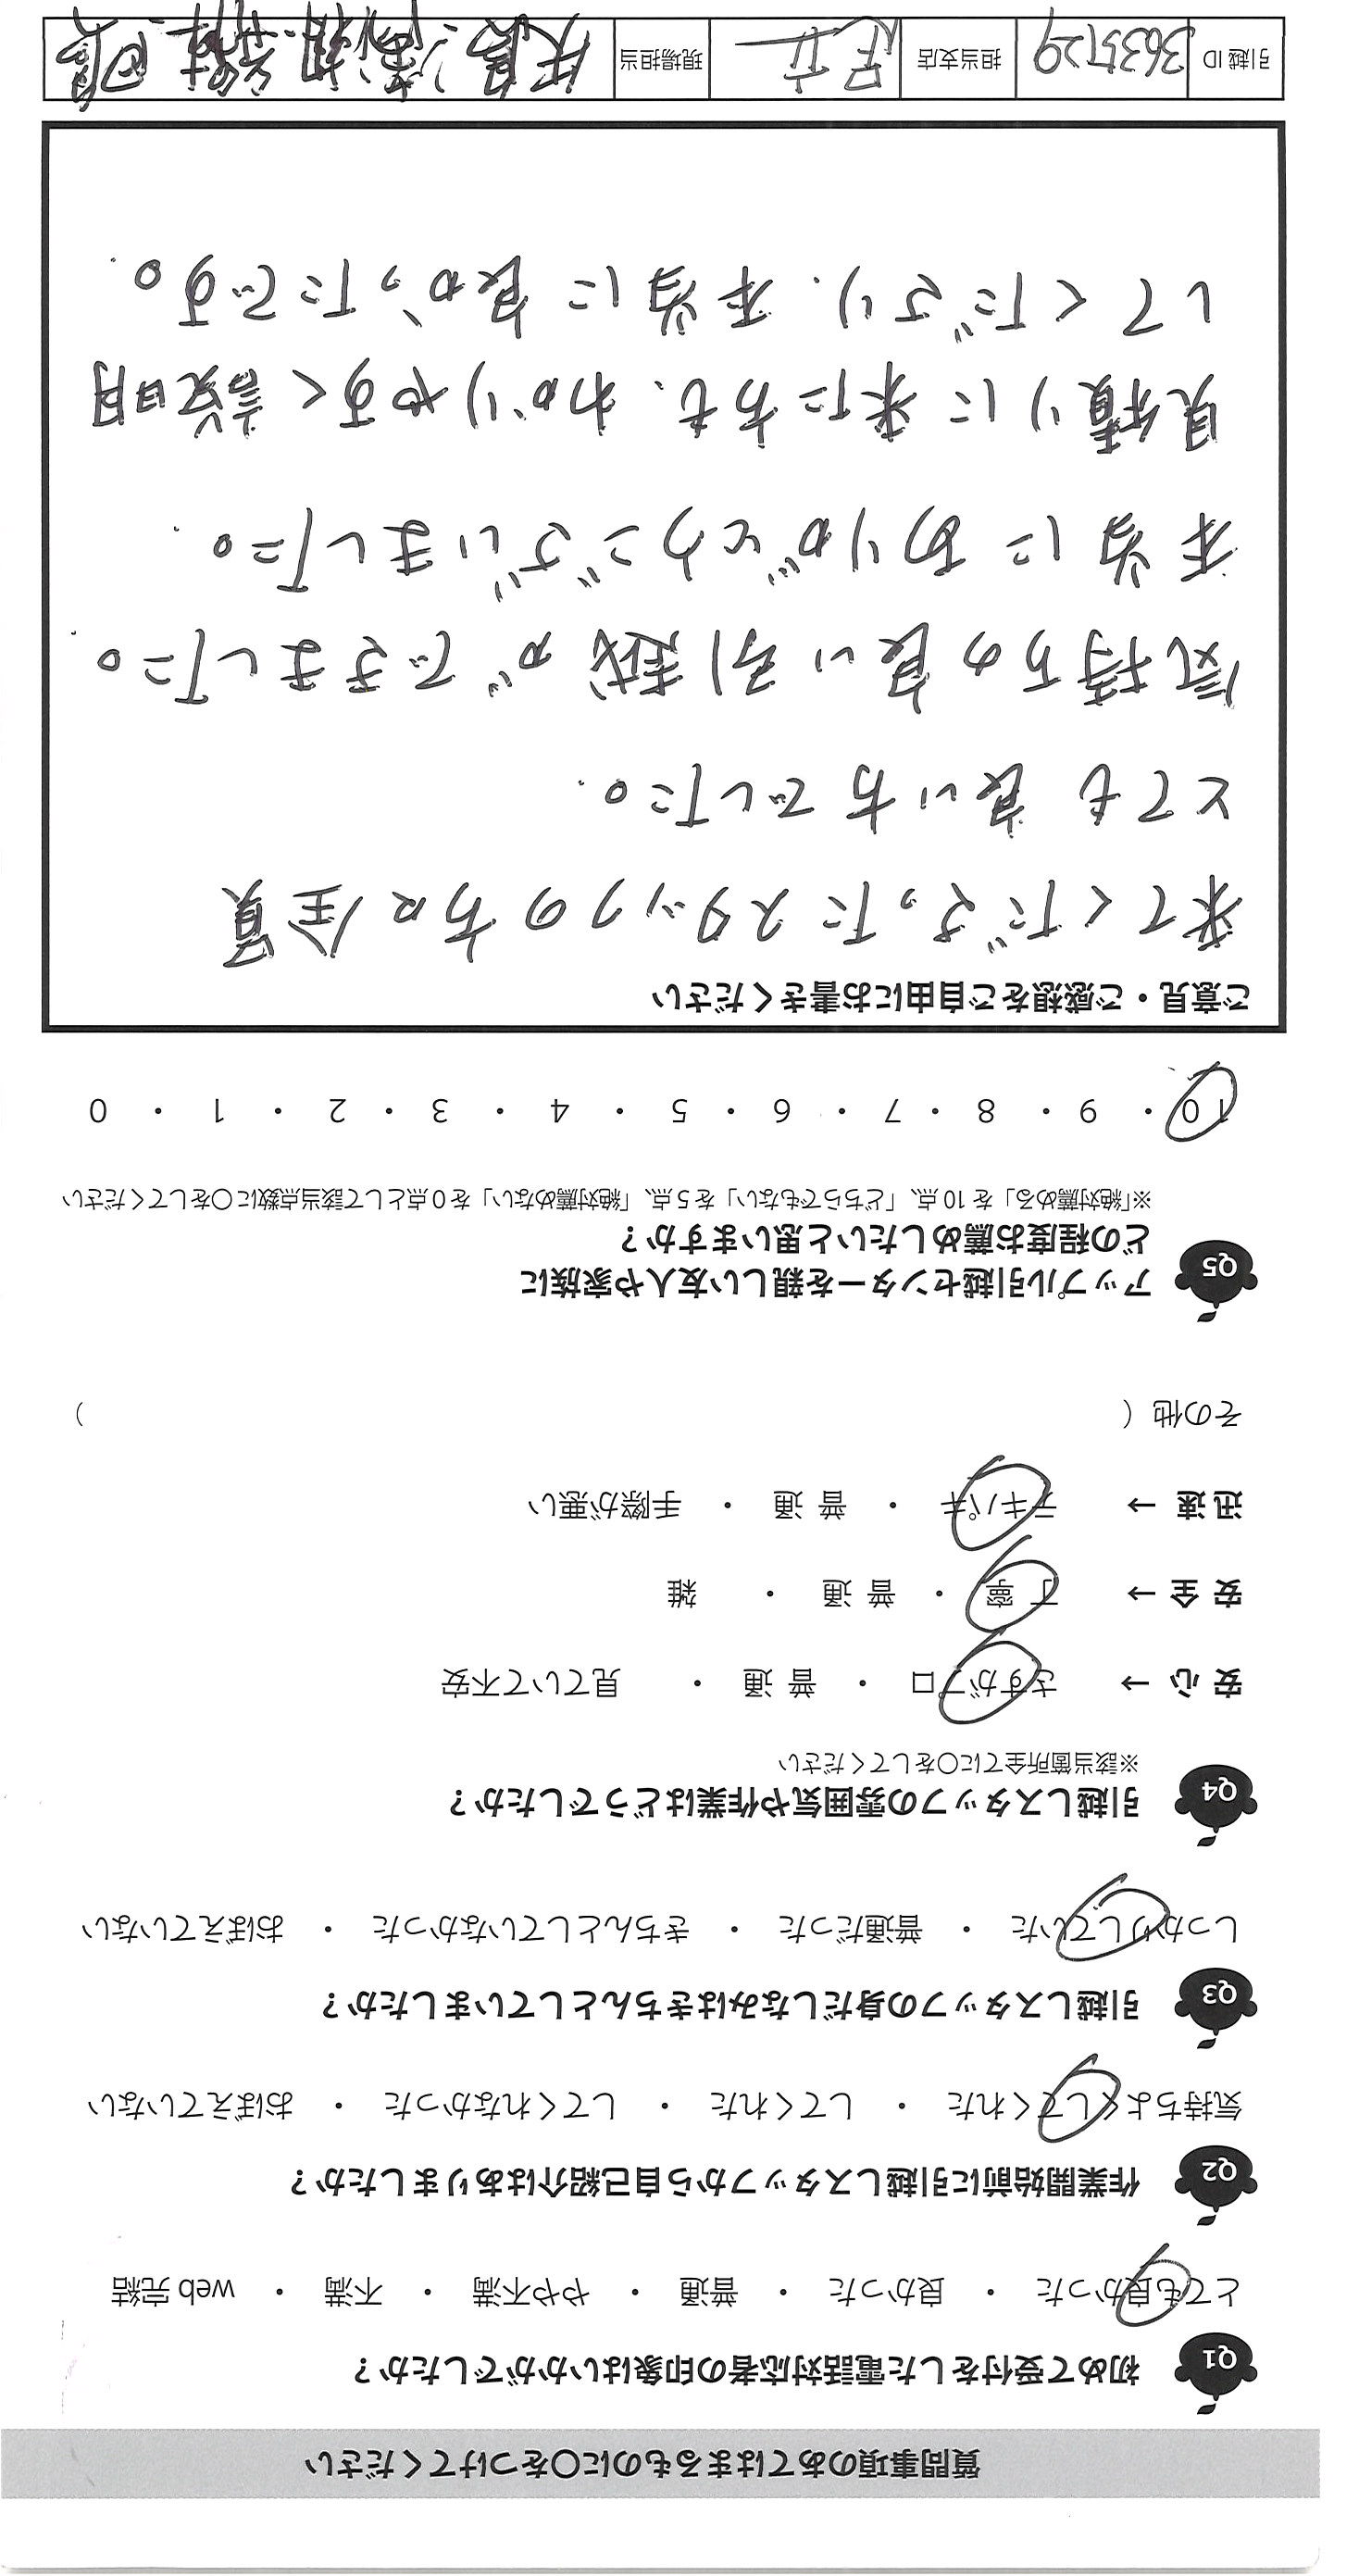 質問事項のあてはまるものに〇をつけてください
Q1 初めて受付をした電話対応者の印象はいかがでしたか？
とても良かった ・ 良かった ・ 普通 ・ やや不満 ・ 不満 ・ web 完結
Q2 作業開始前に引越しスタッフから自己紹介はありましたか？
気持ちよくしてくれた ・ してくれた ・ してくれなかった ・ おぼえていない
Q3 引越しスタッフの身だしなみはきちんとしていましたか？
しっかりしていた ・ 普通だった ・ きちんとしていなかった ・ おぼえていない
Q4 引越しスタッフの雰囲気や作業はどうでしたか？
※該当箇所全てに〇をしてください
安 心 → さすがプロ ・ 普 通 ・ 見ていて不安
安 全 → 丁 寧 ・ 普 通 ・ 雑
迅 速 → テキパキ ・ 普 通 ・ 手際が悪い
その他（ ）
Q5 アップル引越センターを親しい友人や家族に
どの程度お薦めしたいと思いますか？
※「絶対薦める」を 10 点、「どちらでもない」を 5 点、「絶対薦めない」を 0 点として該当点数に〇をしてください
10 ・ 9 ・ 8 ・ 7 ・ 6 ・ 5 ・ 4 ・ 3 ・ 2 ・ 1 ・ 0
ご意見・ご感想をご自由にお書きください
来てくださったスタッフの方々全員
とても良い方でした。
気持ちの良い引越ができました。
本当にありがとうございました。
見積りに来た方も、わかりやすく説明
してくださり、本当に良かったです。
引越 ID 3635129 担当支店 足立 現場担当